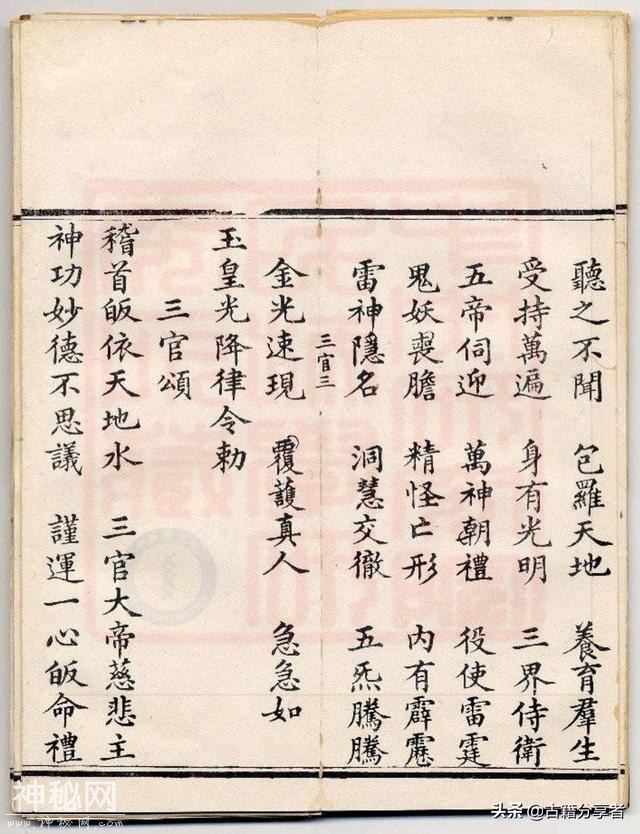 聽之不聞 包羅天地 養育羣生
受持萬遍 身有光明 三界侍衛
五帝伺迎 萬神朝禮 役使雷霆
鬼妖喪膽 精怪亡形 內有霹靂
雷神隱名 洞慧交徹 五炁騰騰
三官三
金光速現 覆護真人 急急如
玉皇光降律令勅
三官頌
稽首皈依天地水 三官大帝慈悲主
神功妙德不思議 謹運一心皈命禮
神秘网
www.shenmi.com.cn
头条 @古籍分享者